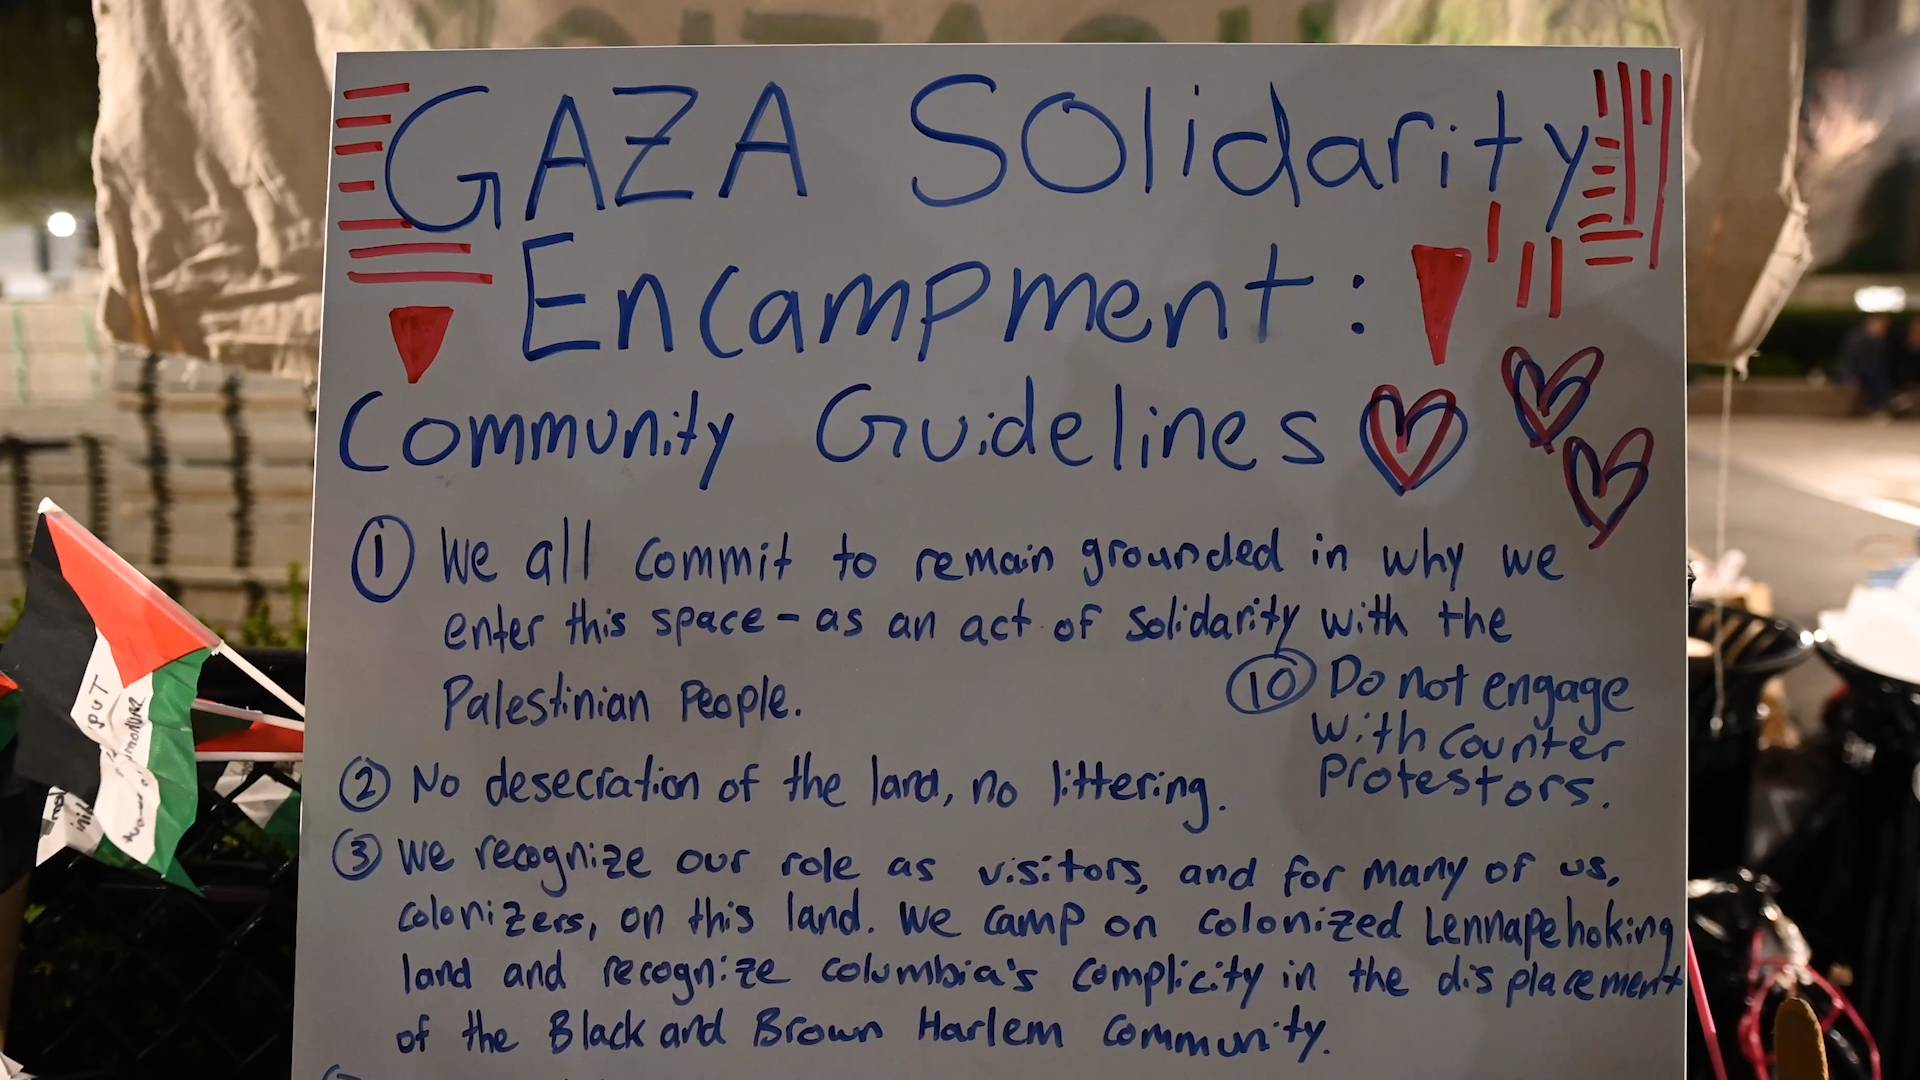 GAZA SOlidarity
Encampment:
Community Guidelines
① We all commit to remain grounded in why we
enter this space - as an act of solidarity with the
Palestinian People.
② No desecration of the land, no littering.
③ We recognize our role as visitors, and for many of us,
colonizers, on this land. We camp on colonized Lennapehoking
land and recognize columbia's complicity in the displacement
of the Black and Brown Harlem Community.
⑩ Do not engage
with counter
Protestors.